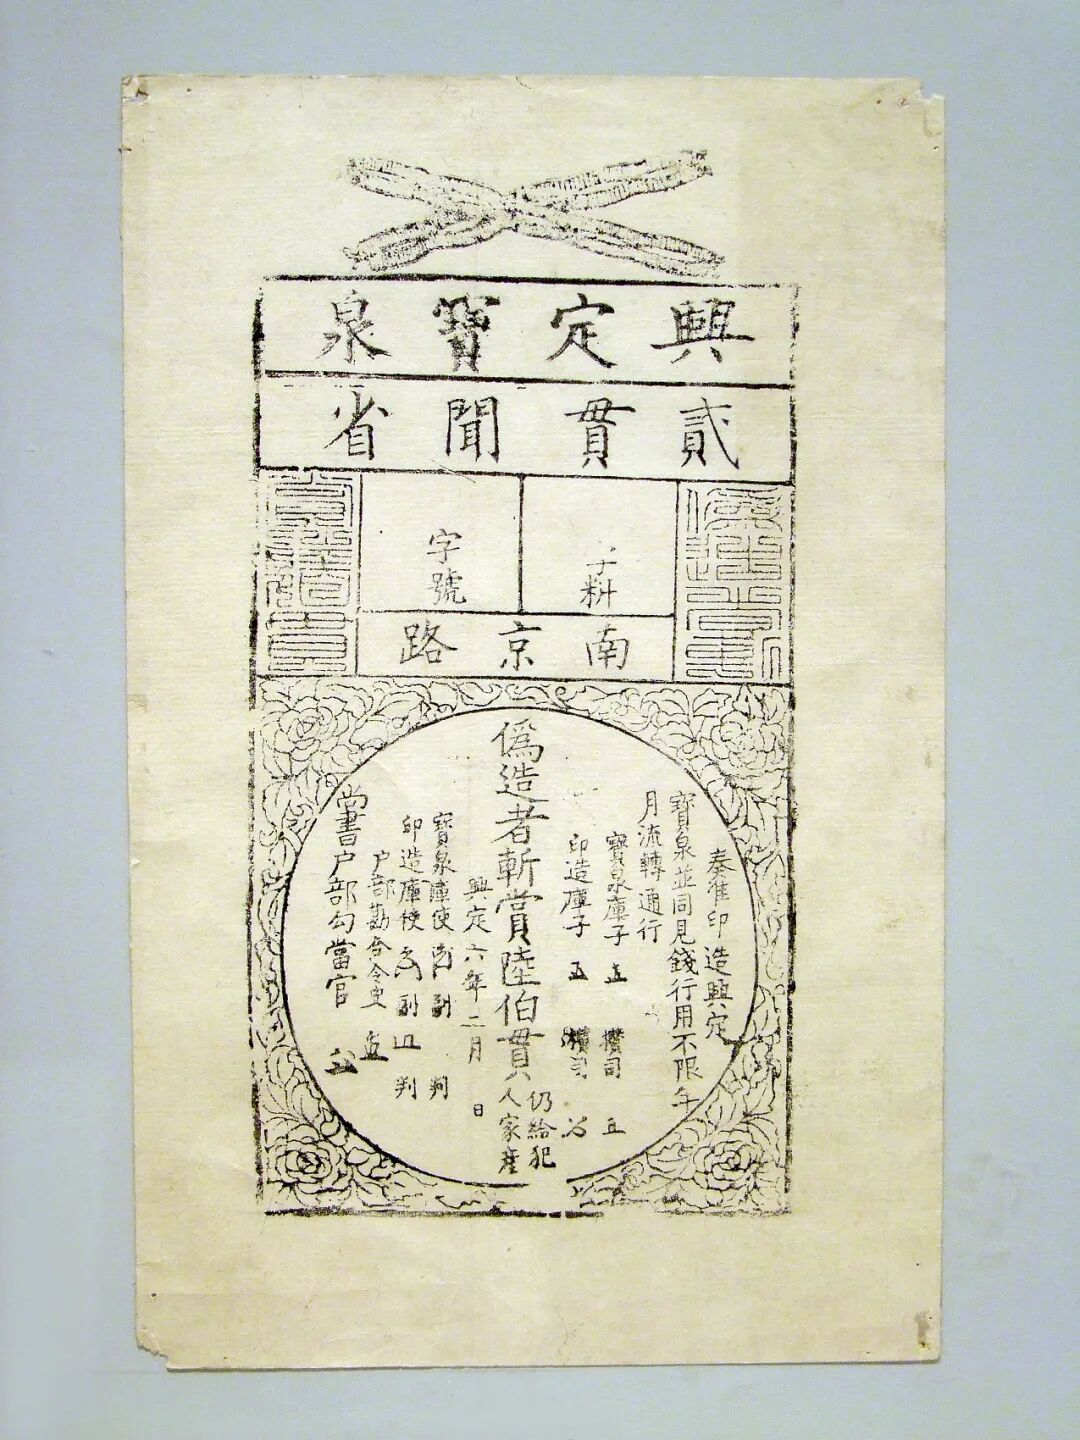 興定寶泉
貳貫聞省
字料
字號
南京路
奏准印造興定
寶泉並同見錢行用不限年
月流轉通行
寶泉庫子 攢司
印造庫子 攢司
偽造者斬賞陸伯貫
仍給犯
人家產
興定六年二月 日
寶泉庫使 副 判
印造庫使 副 判
戶部勘合令史
尚書戶部勾當官